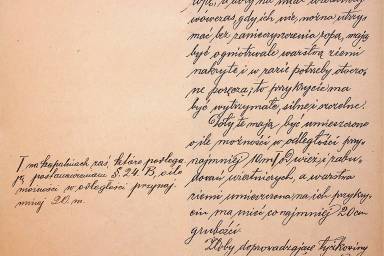 wowczas, gdy ich nie można utrzy-
mać, bez zanieczyszczenia ropą, mają
być ogniotrwale warstwą ziemi
nakryte i w razie potrzeby otoczo-
ne poręczą; to przykrycie ma
być wytrzymałe, silne i szczelne.
Doły te mają, być umieszczone
o ile możności w odległości przy-
najmniej 10m, od wież i zabu-
dowań wiertniczych, a warstwa
ziemi, umieszczona na ich przykry-
ciu, ma mieć conajmniej 20cm
grubości.
Żłoby doprowadzające łyżkowiny
I w kopalniach zaś, które podlega-
ją postanowieniom § 24. B, o ile
możności w odległości przynaj-
mniej 20. m.